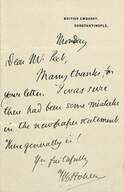 BRITISH EMBASSY,
CONSTANTINOPLE.
Monday
Dear Mr
Many thanks for
your letter. I was sure
there had been some mistake
in the newspaper statement.
There generally is!
Yrs faithfully